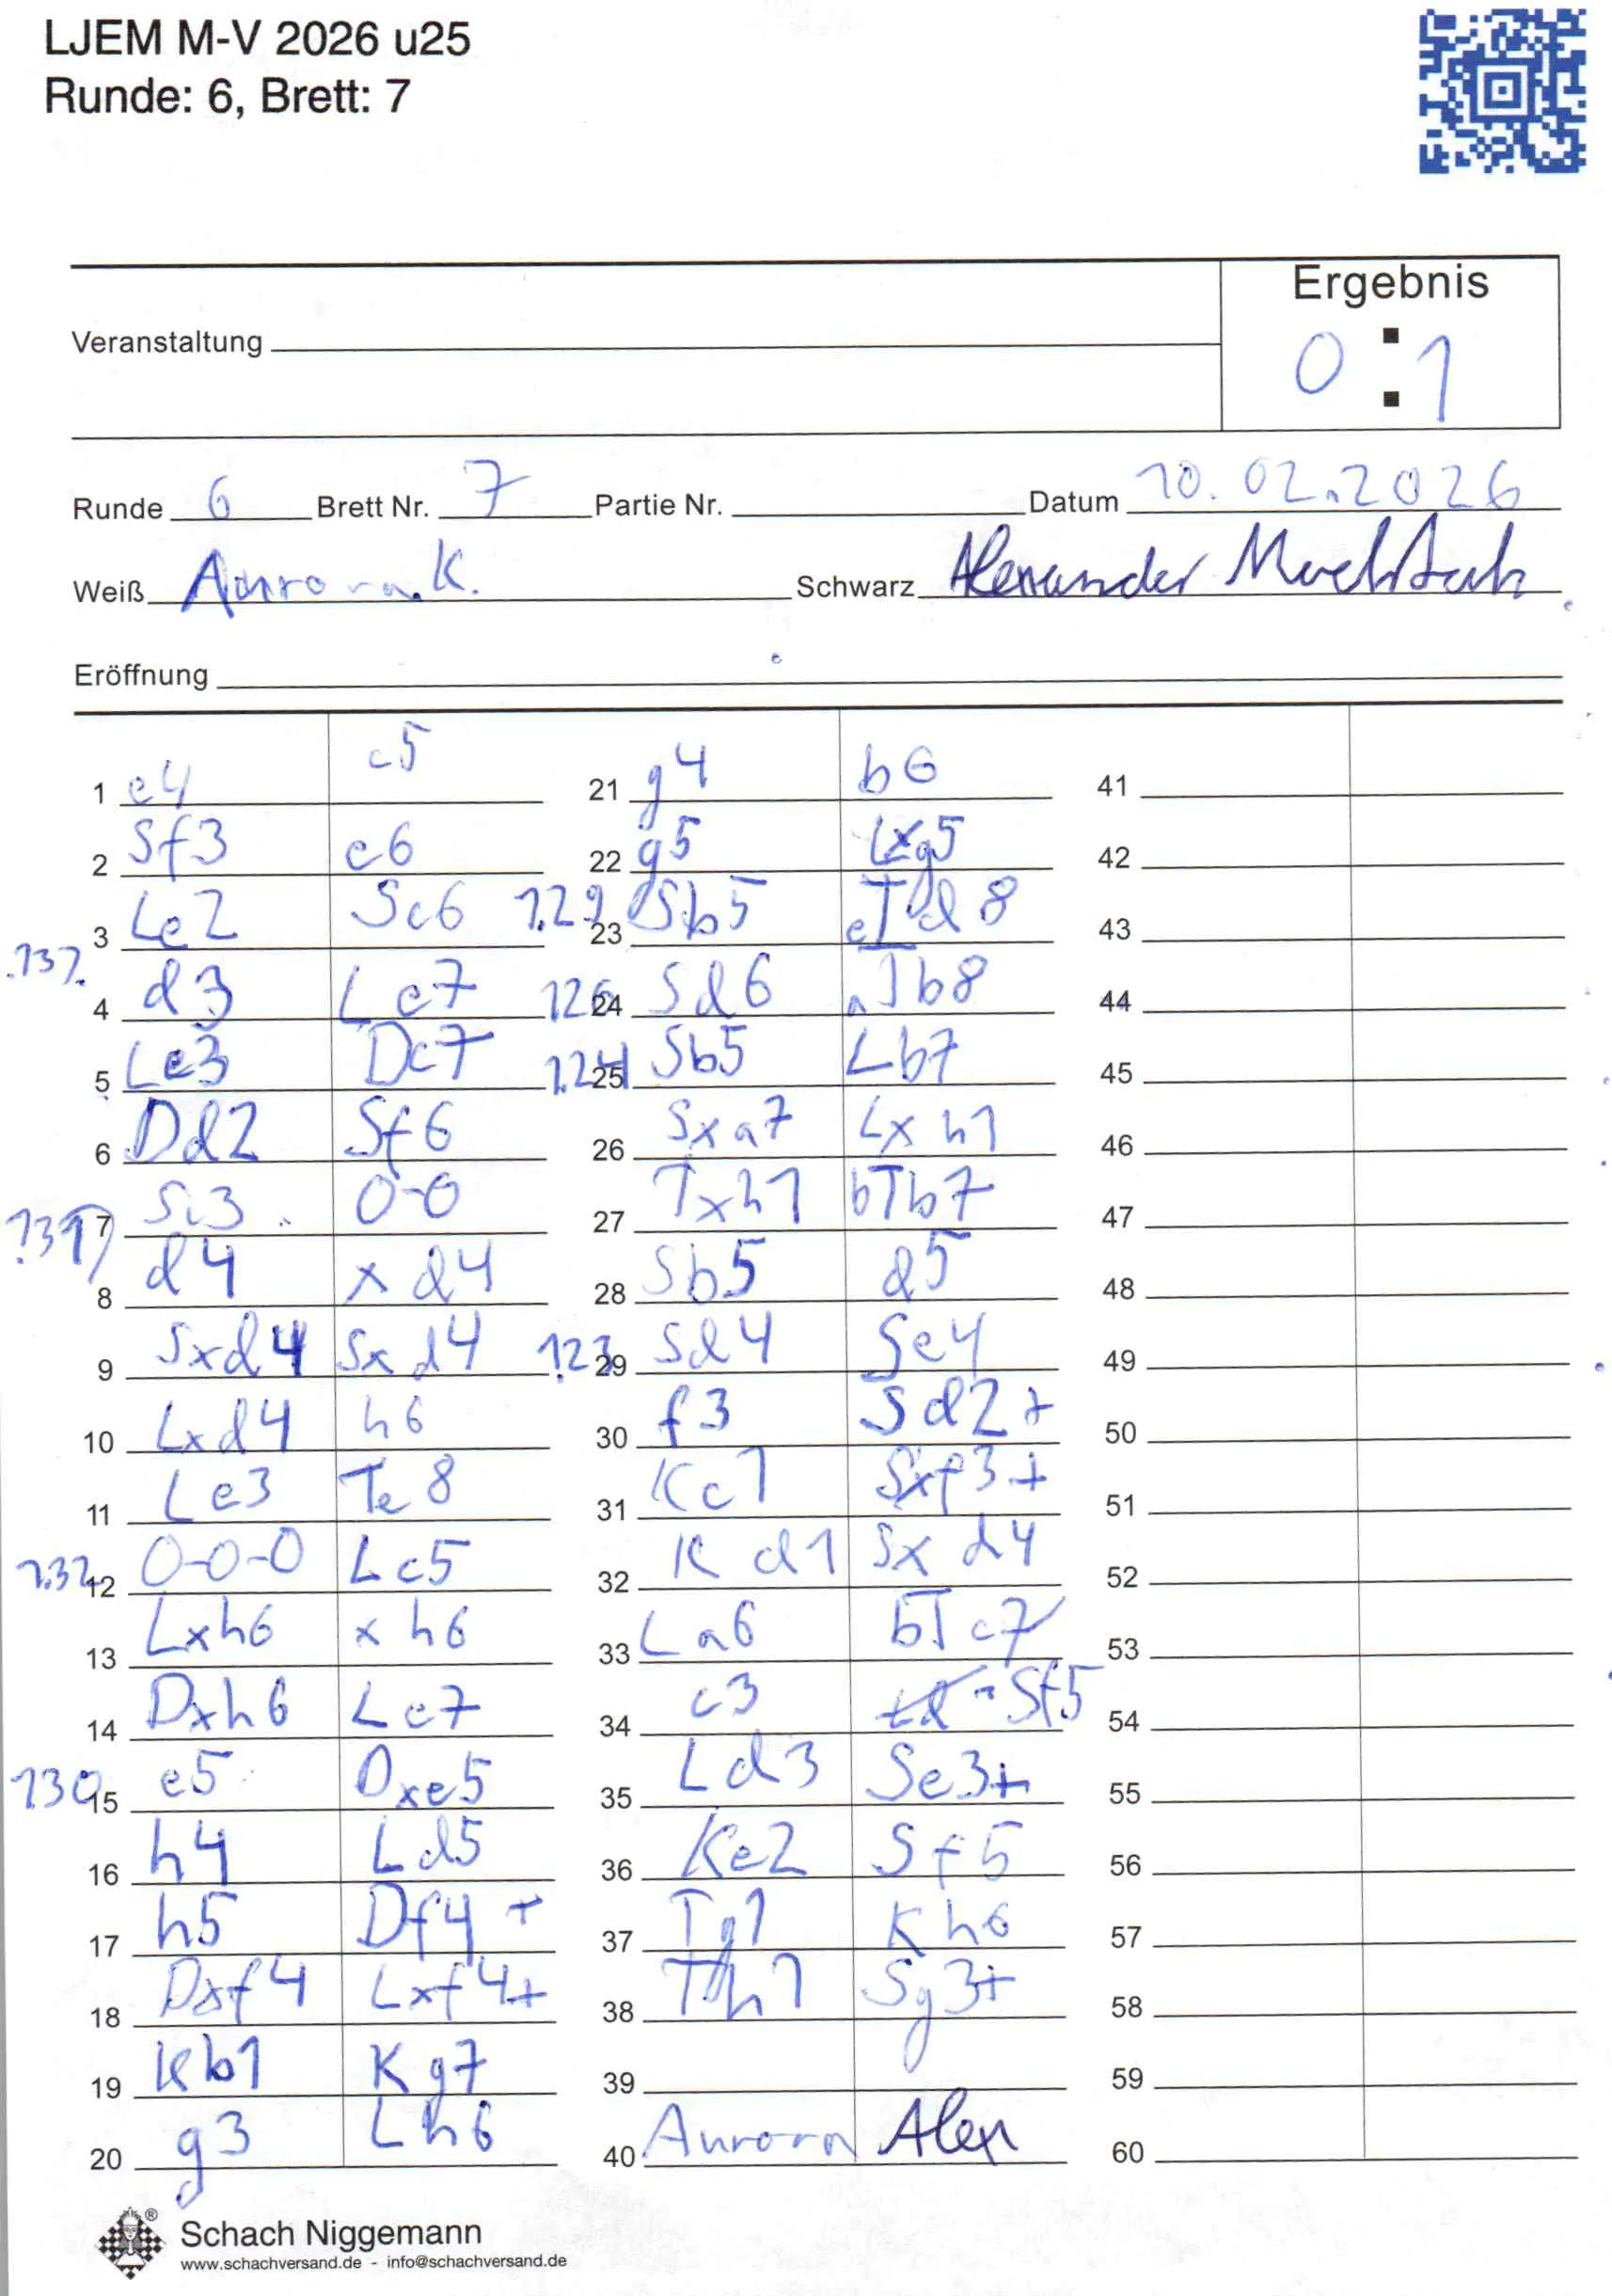 LJEM M-V 2026 u25
Runde: 6, Brett: 7
Ergebnis
Veranstaltung
0 : 1
Runde 6 Brett Nr. 7 Partie Nr. Datum 10.02.2026
Weiß Aurora K. Schwarz Alexander
Eröffnung
1 e4 c5 21 g4 b6 41
2 Sf3 e6 22 g5 Lxg5 42
3 Le2 Sc6 1.29 23 Sb5 eTd8 43
137 4 d3 Le7 126 24 Sd6 aTb8 44
5 Le3 Dc7 1.24 25 Sb5 Lb7 45
6 Dd2 Sf6 26 Sxa7 Lxh1 46
7 Sc3 0-0 27 Txh1 bTb7 47
8 d4 xd4 28 Sb5 d5 48
9 Sxd4 Sxd4 123 29 Sd4 Se4 49
10 Lxd4 h6 30 f3 Sd2+ 50
11 Le3 Te8 31 Kc1 Sxf3+ 51
1.32 12 0-0-0 Lc5 32 Kd1 Sxd4 52
13 Lxh6 xh6 33 La6 bTc7 53
14 Dxh6 Le7 34 c3 Sf5 54
130 15 e5 Dxe5 35 Ld3 Se3+ 55
16 h4 Ld5 36 Ke2 Sf5 56
17 h5 Df4+ 37 Tg1 Kh6 57
18 Dxf4 Lxf4+ 38 Th1 Sg3+ 58
19 Kb1 Kg7 39 59
20 g3 Lh6 40 Aurora Alex 60
Schach Niggemann
www.schachversand.de - info@schachversand.de